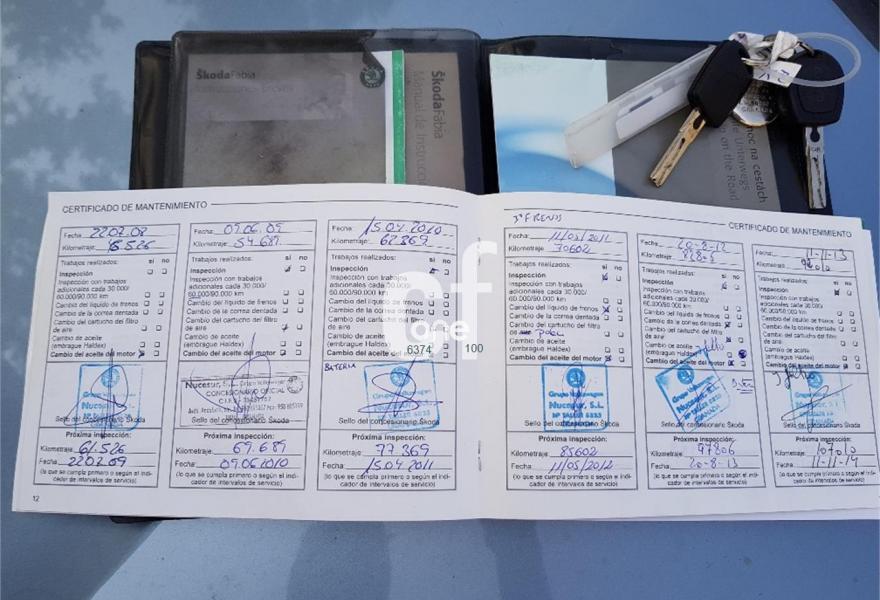 ŠkodaFabia
ŠkodaFabia
Manual de Instrucc
noc na cestách
Unterwegs
on the Road
CERTIFICADO DE MANTENIMIENTO
Fecha: 22.02.08
Kilometraje:
Trabajos realizados:
sí no
Inspección
Inspección con trabajos
adicionales cada 30.000/
60.000/90.000 km
Cambio del líquido de frenos
Cambio de la correa dentada
Cambio del cartucho del filtro
de aire
Cambio de aceite
(embrague Haldex)
Cambio del aceite del motor
Sello del concesionario Škoda
Próxima inspección:
Kilometraje: 61.526
Fecha: 22.02.09
(lo que se cumpla primero o según el indi-
cador de intervalos de servicio)
12
Fecha: 09.06.09
Kilometraje: 54.689
Trabajos realizados:
sí no
Inspección
Inspección con trabajos
adicionales cada 30.000/
60.000/90.000 km
Cambio del líquido de frenos
Cambio de la correa dentada
Cambio del cartucho del filtro
de aire
Cambio de aceite
(embrague Haldex)
Cambio del aceite del motor
Nucesur, S.L.
CONCESIONARIO OFICIAL
Sello del concesionario Škoda
Próxima inspección:
Kilometraje: 69.689
Fecha: 09.06.2010
(lo que se cumpla primero o según el indi-
cador de intervalos de servicio)
Fecha: 15.04.2010
Kilometraje: 62.369
Trabajos realizados:
sí no
Inspección
Inspección con trabajos
adicionales cada 30.000/
60.000/90.000 km
Cambio del líquido de frenos
Cambio de la correa dentada
Cambio del cartucho del filtro
de aire
Cambio de aceite
(embrague Haldex)
Cambio del aceite del
BATERIA
Sello del concesionario Škoda
Próxima inspección:
Kilometraje: 77.369
Fecha: 15.04.2011
(lo que se cumpla primero o según el indi-
cador de intervalos de servicio)
one
6374 100
CERTIFICADO DE MANTENIMIENTO
Fecha: 11/05/2011
Kilometraje: 70602
Trabajos realizados:
sí no
Inspección
Inspección con trabajos
adicionales cada 30.000/
60.000/90.000 km
Cambio del líquido de frenos
Cambio de la correa dentada
Cambio del cartucho del filtro
Cambio de aceite
(embrague Haldex)
Cambio del aceite del motor
Grupo Volkswagen
Nucesur, S.L.
Sello del concesionario Škoda
Próxima inspección:
Kilometraje: 85602
Fecha: 11/05/2012
(lo que se cumpla primero o según el indi-
cador de intervalos de servicio)
Fecha: 20-8-12
Kilometraje:
Trabajos realizados:
sí no
Inspección
Inspección con trabajos
adicionales cada 30.000/
60.000/90.000 km
Cambio del líquido de frenos
Cambio de la correa dentada
Cambio del cartucho del filtro
de aire
Cambio de aceite
(embrague Haldex)
Cambio del aceite del motor
Grupo Volkswagen
Nucesur, S.L.
Sello del concesionario Škoda
Próxima inspección:
Kilometraje: 97806
Fecha: 20-8-13
(lo que se cumpla primero o según el indi-
cador de intervalos de servicio)
Fecha: 11-11-13
Kilometraje:
Trabajos realizados:
sí no
Inspección
Inspección con trabajos
adicionales cada 30.000/
60.000/90.000 km
Cambio del líquido de frenos
Cambio de la correa dentada
Cambio del cartucho del filtro
de aire
Cambio de aceite
(embrague Haldex)
Cambio del aceite del motor
Sello del concesionario Škoda
Próxima inspección:
Kilometraje: 107010
Fecha: 11-11-14
(lo que se cumpla primero o según el indi-
cador de intervalos de servicio)